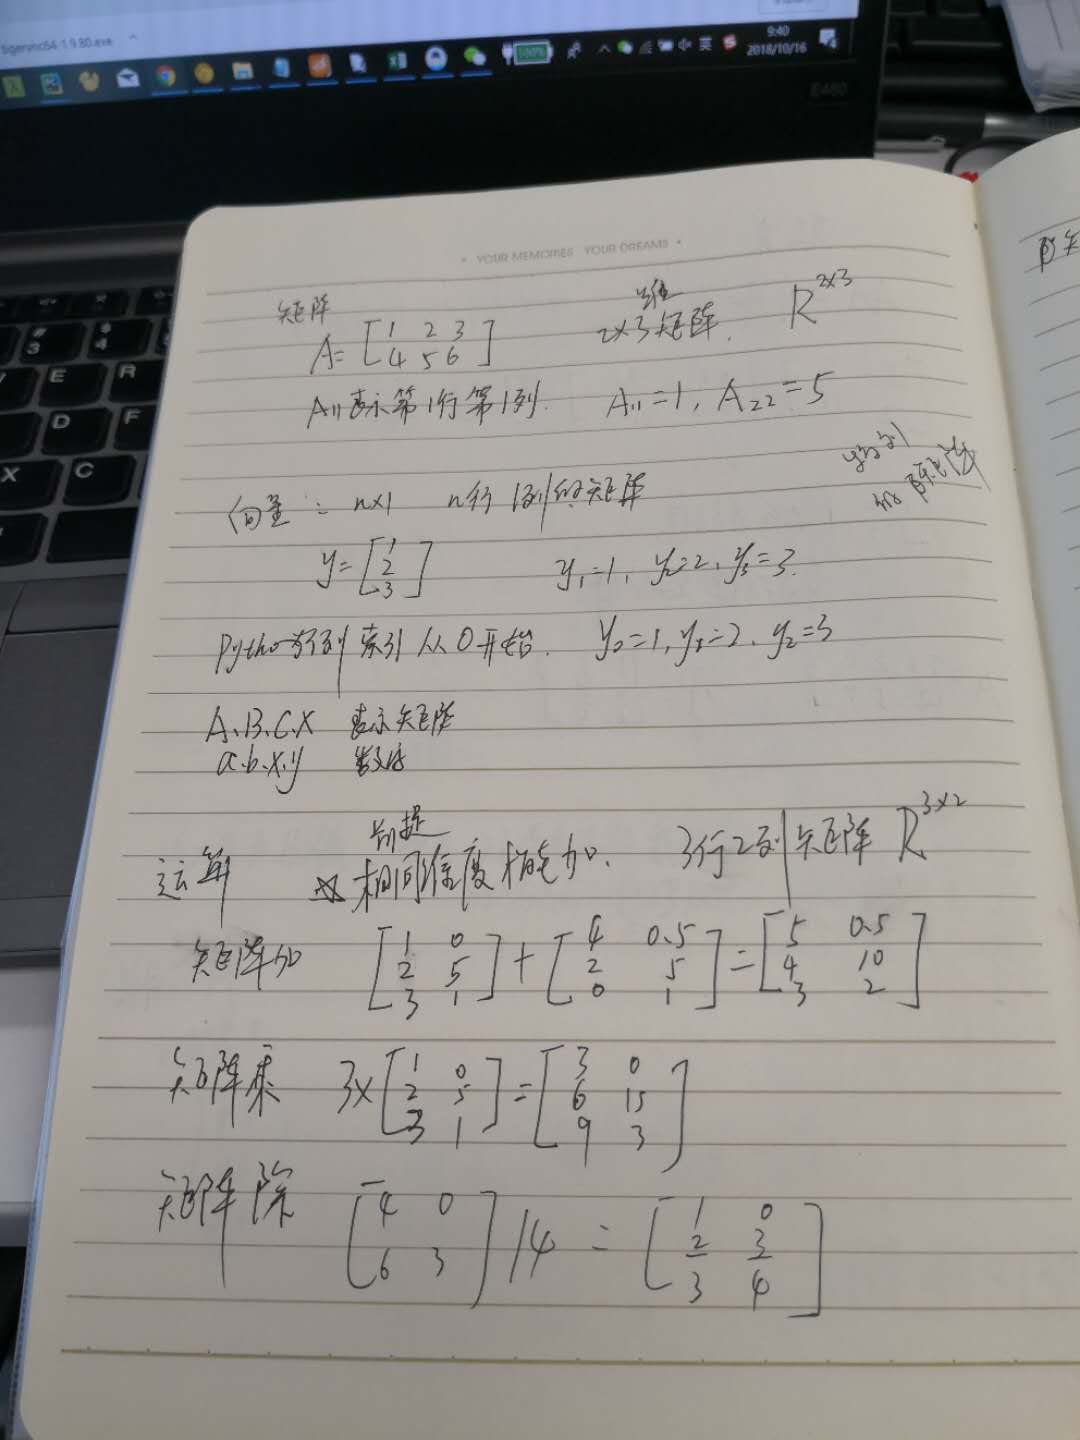 tigervnc64-1.9.80.exe
100%
英
9:40
2018/10/16
E460
3
4
E
R
X
C
YOUR MEMORIES YOUR DREAMS
矩阵
A= [1 2 3
4 5 6]
维
2×3矩阵. R^2×3
A11表示第1行第1列. A11=1, A22=5
向量: n×1 n行1列的矩阵
y= [1
2
3]
y1=1, y2=2, y3=3.
Python 索引从0开始. y0=1, y1=2, y2=3
A.B.C.X 表示矩阵
a.b.x.y
前提
运算 相同维度才能加. 3行2列矩阵 R^3×2
矩阵加 [1 0
2 5
3 1] + [4 0.5
2 5
0 1] = [5 0.5
4 10
3 2]
矩阵乘 3× [1 0
2 5
3 1] = [3 0
6 15
9 3]
矩阵除 [4 0
6 3] /4 = [1 0
2/3 3/4]